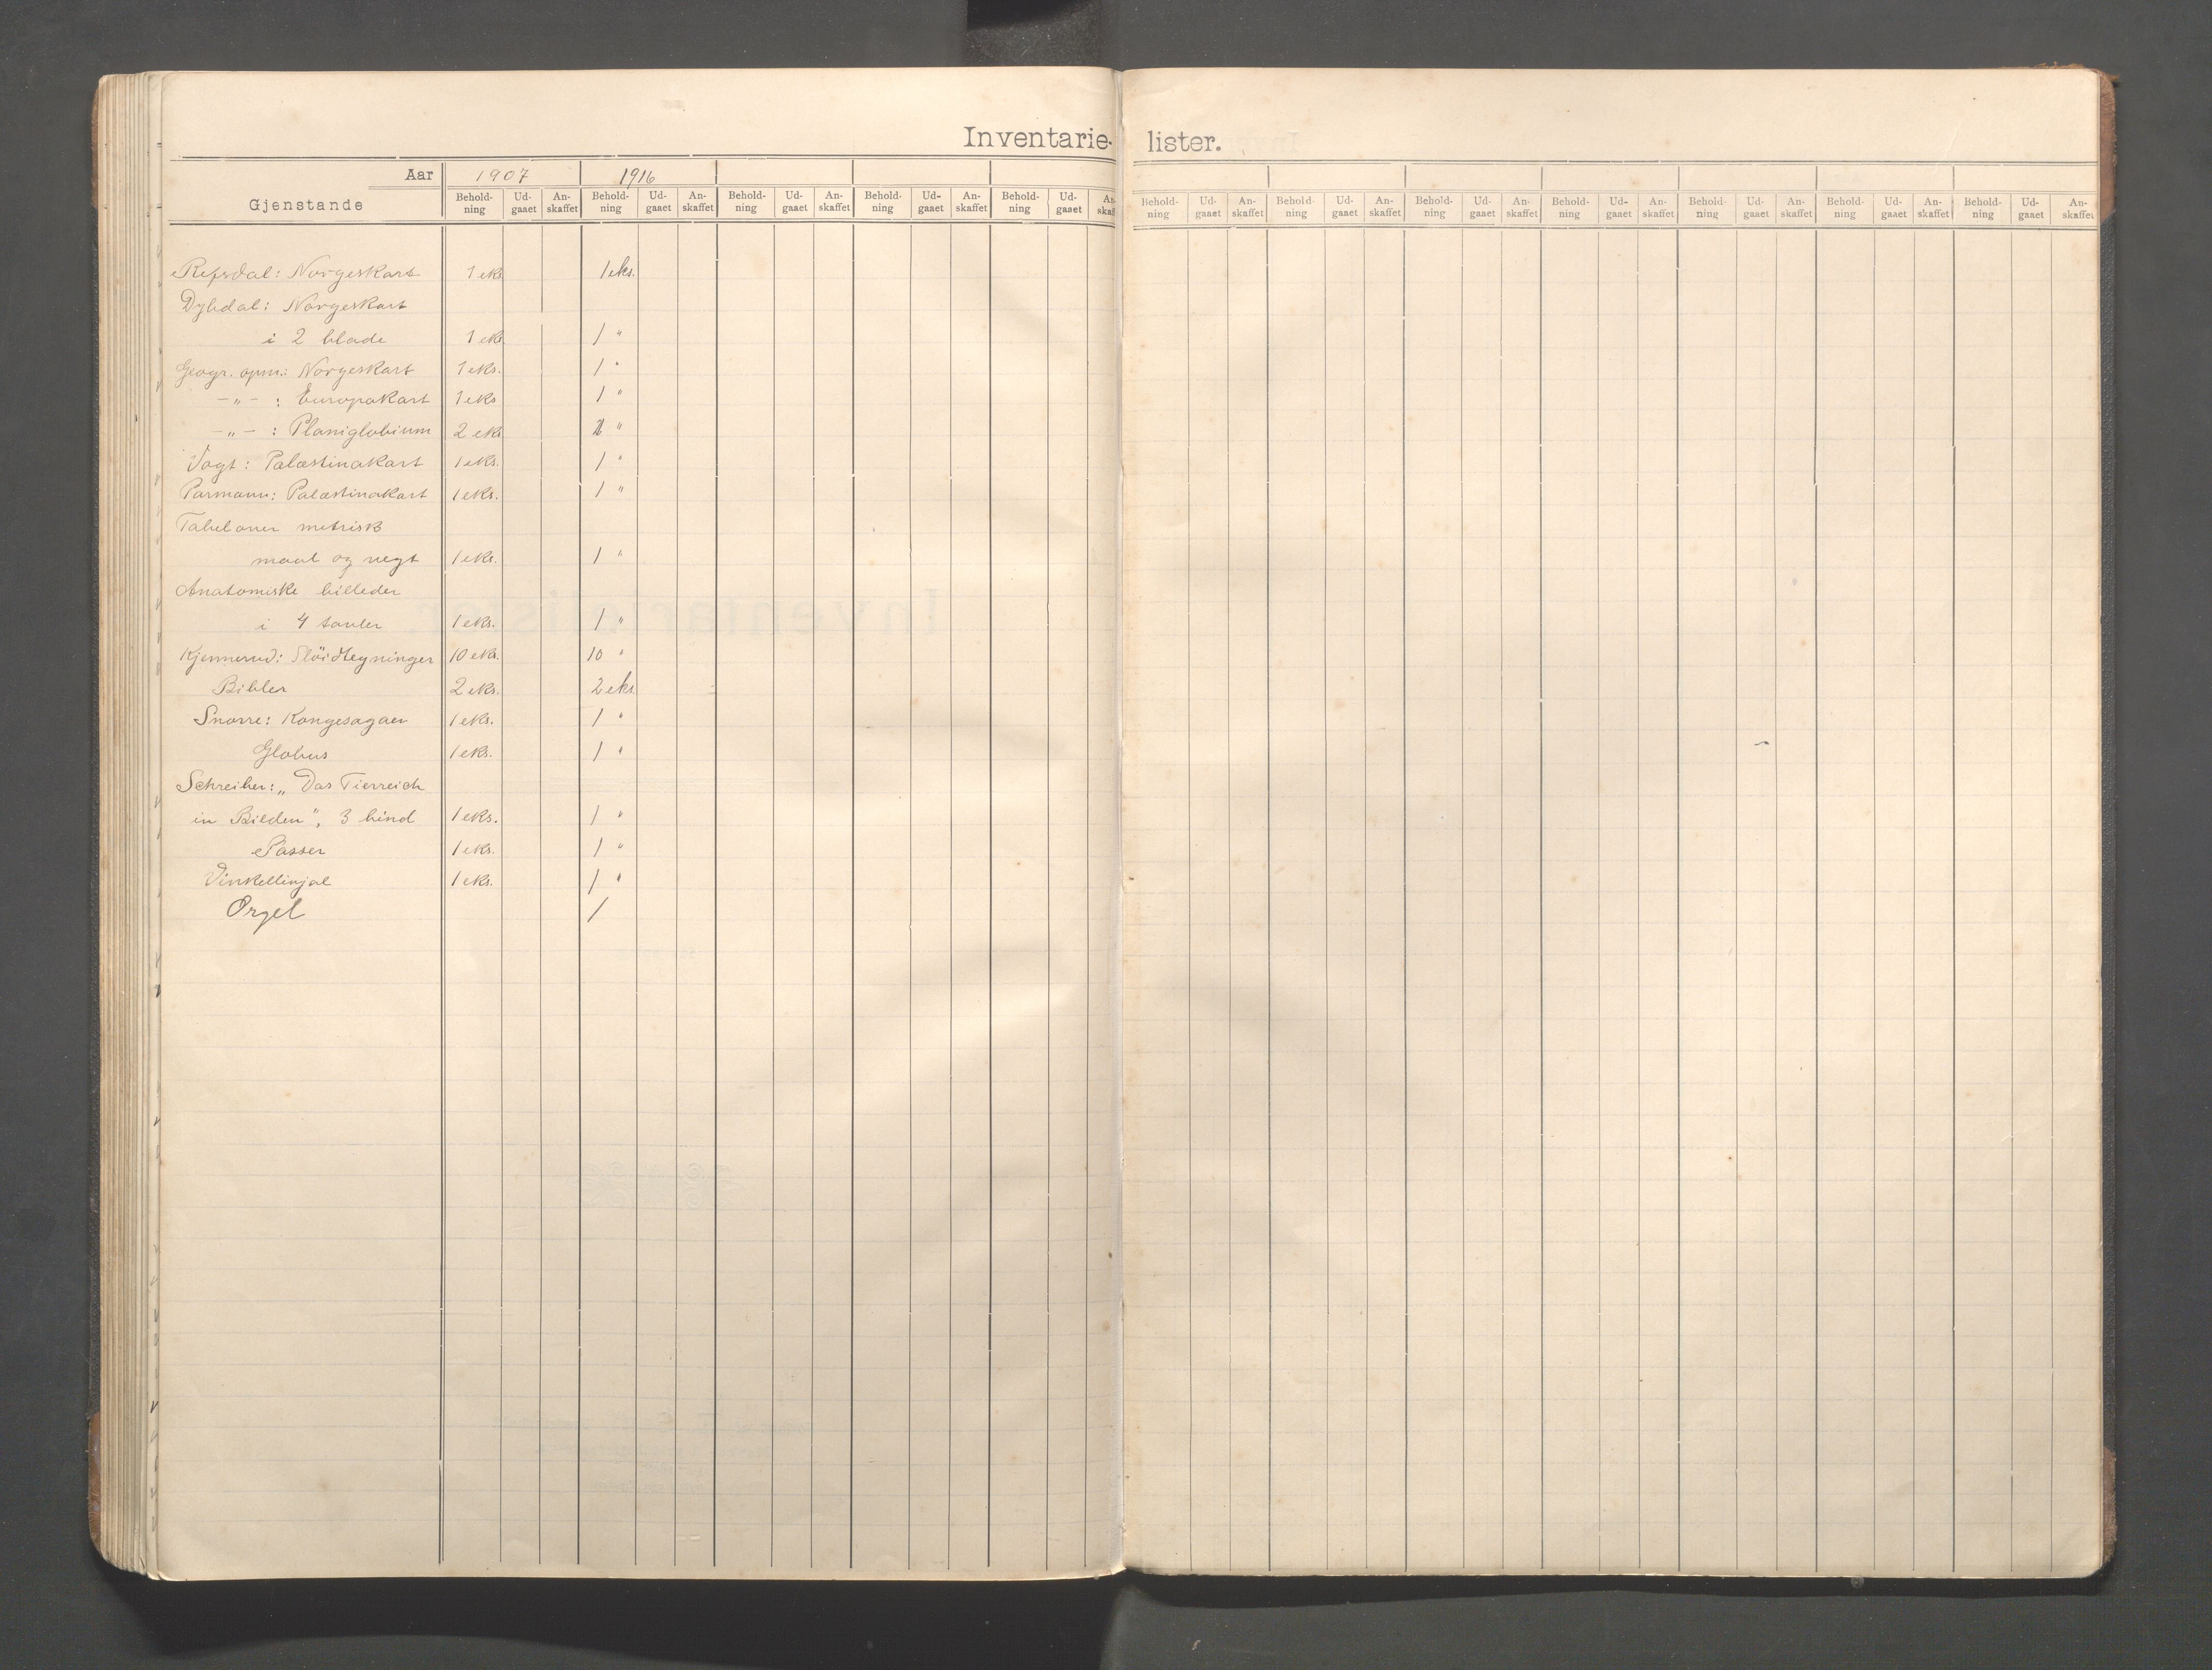 Inventarie- lister.
Aar 1907 1916
Gjenstande Behold-ning Ud-gaaet An-skaffet Behold-ning Ud-gaaet An-skaffet Behold-ning Ud-gaaet An-skaffet Behold-ning Ud-gaaet An-skaffet Behold-ning Ud-gaaet An-skaf Behold-ning Ud-gaaet An-skaffet Behold-ning Ud-gaaet An-skaffet Behold-ning Ud-gaaet An-skaffet Behold-ning Ud-gaaet An-skaffet Behold-ning Ud-gaaet An-skaffet Behold-ning Ud-gaaet An-skaffet Behold-ning Ud-gaaet An-skaffet
Refsdal: Norgeskart 1 eks 1 eks.
Dybdal: Norgeskart
i 2 blade 1 eks 1 "
Geogr. opm.: Norgeskart 1 eks. 1 "
- " - : Europakart 1 eks 1 "
- " - : Planiglobium 2 eks "
Vogt: Palæstinakart 1 eks. 1 "
Parmann: Palæstinakart 1 eks. 1 "
Tabel over metrisk
maal og vegt 1 eks. 1 "
Anatomiske billeder
i 4 tavler 1 eks. 1 "
Kjennerud: Slöidtegninger 10 eks. 10 "
Bibler 2 eks. 2 eks.
Snorre: Kongesagaer 1 eks. 1 "
Globus 1 eks. 1 "
Schreiber: „Das Tierreich
in Bilden", 3 bind 1 eks. 1 "
Passer 1 eks. 1 "
Vinkellinjal 1 eks. 1 "
Orgel 1